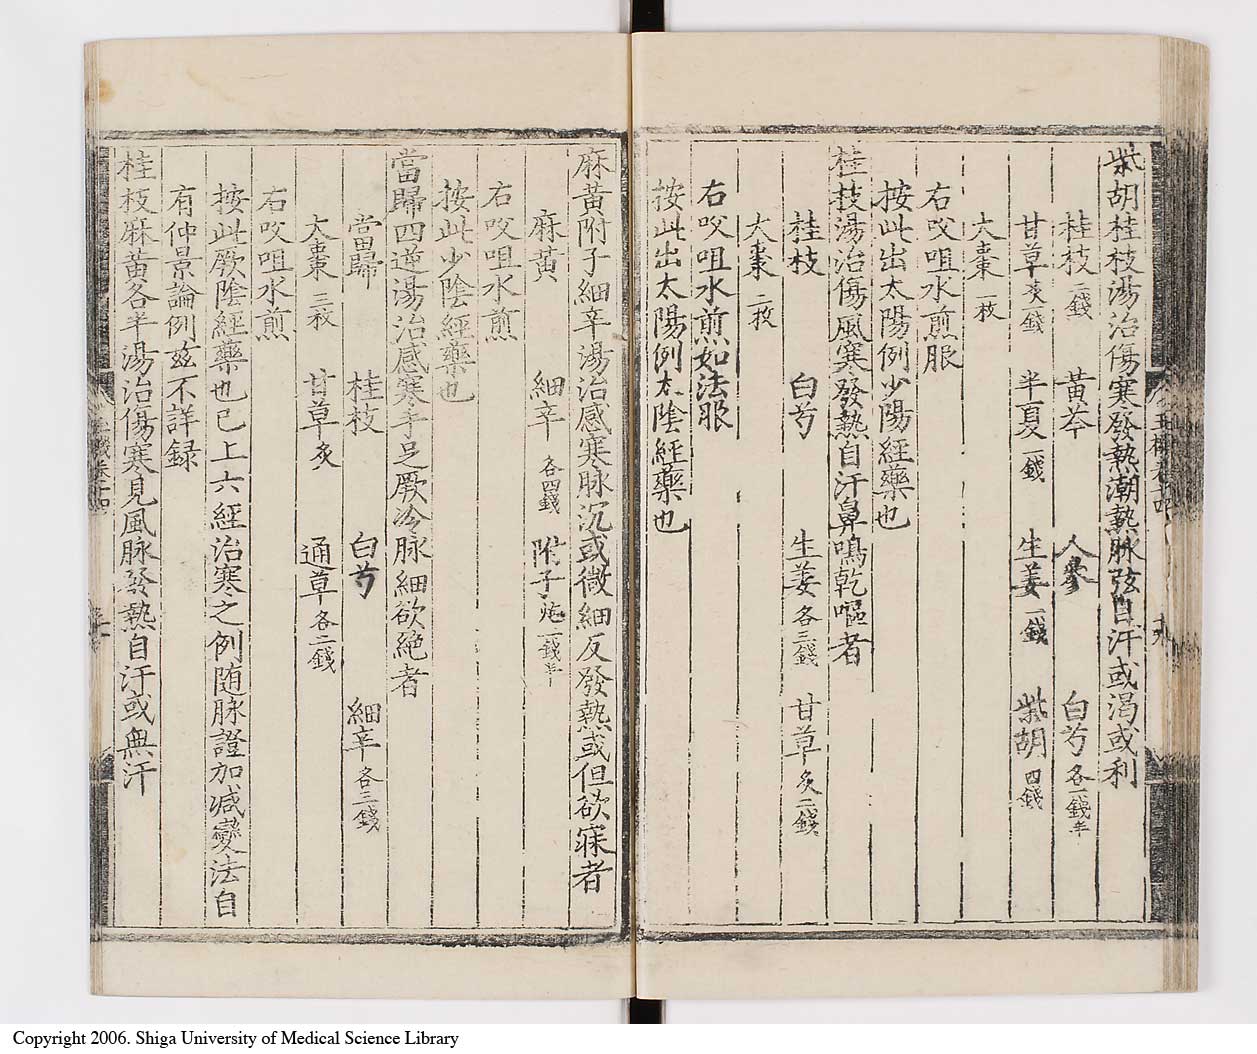 柴胡桂枝湯治傷寒發熱潮熱脉弦自汗或渴或利
桂枝二錢 黃芩 人參 白芍各二錢半
甘草炙一錢 半夏一錢 生姜一錢 柴胡四錢
大棗一枚
右㕮咀水煎服
按此出太陽例少陽經藥也
桂枝湯治傷風寒發熱自汗鼻鳴乾嘔者
桂枝 白芍 生姜各三錢 甘草炙二錢
大棗二枚
右㕮咀水煎如法服
按此出太陽例太陰經藥也
麻黃附子細辛湯治感寒脉沉或微細反發熱或但欲寐者
麻黃 細辛各四錢 附子炮一錢半
右㕮咀水煎
按此少陰經藥也
當歸四逆湯治感寒手足厥冷脉細欲絕者
當歸 桂枝 白芍 細辛各三錢
大棗三枚 甘草炙 通草各二錢
右㕮咀水煎
按此厥陰經藥也已上六經治寒之例随脉證加减變法自
有仲景論例玆不詳録
桂枝麻黃各半湯治傷寒見風脉發熱自汗或無汗
Copyright 2006. Shiga University of Medical Science Library